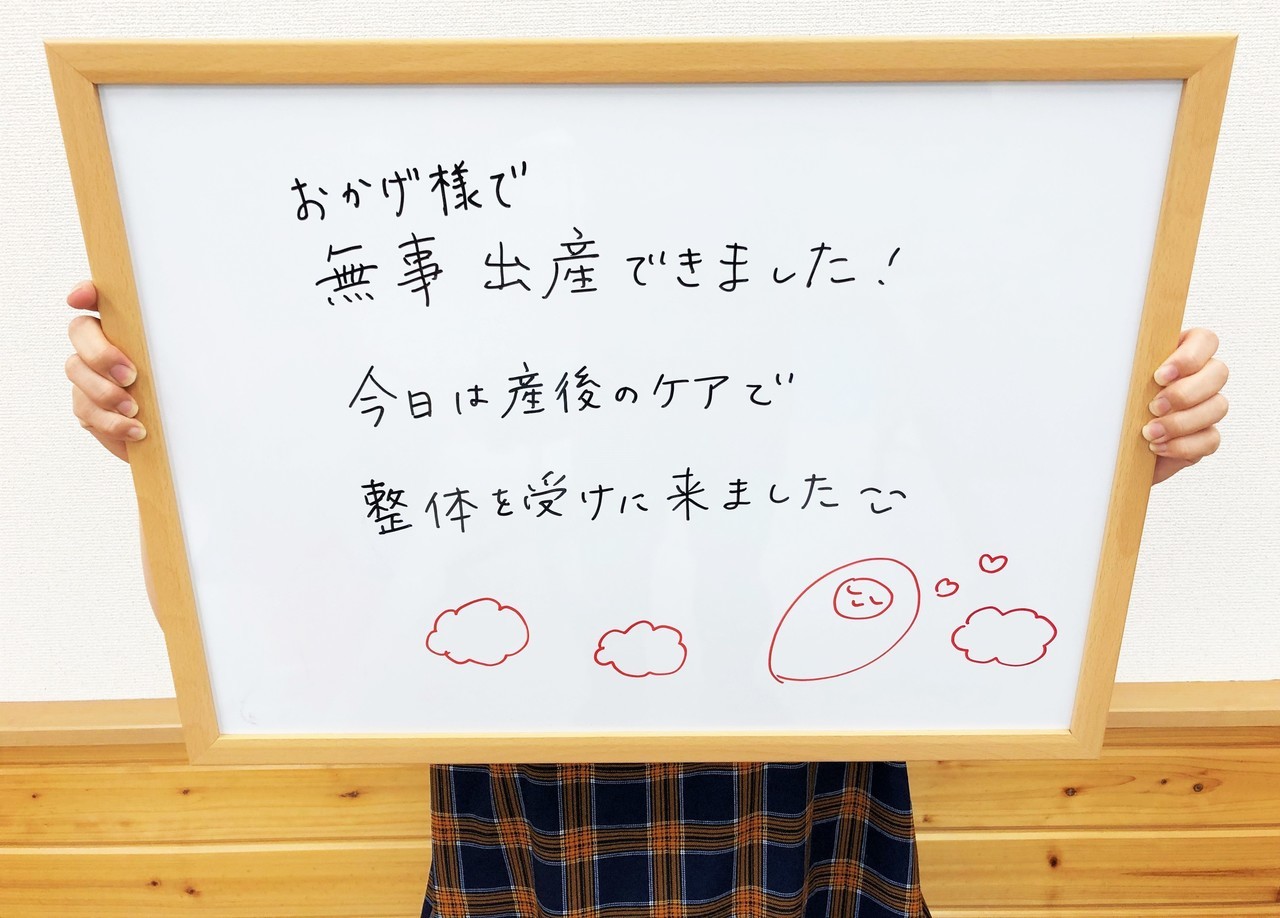 おかげ様で
無事 出産できました!
今日は産後のケアで
整体を受けに来ました